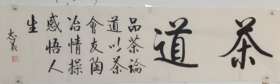 茶道
品茶论
道以茶
会友陶
冶情操
感悟人
生